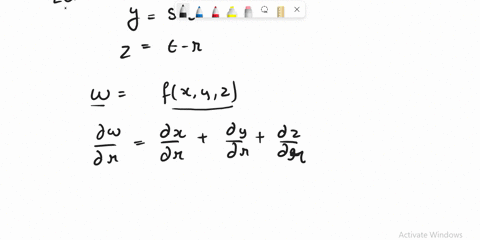 y = s
z = t-r
w = f(x, y, z)
∂w/∂r = ∂x/∂r + ∂y/∂r + ∂z/∂r
Activate Windows